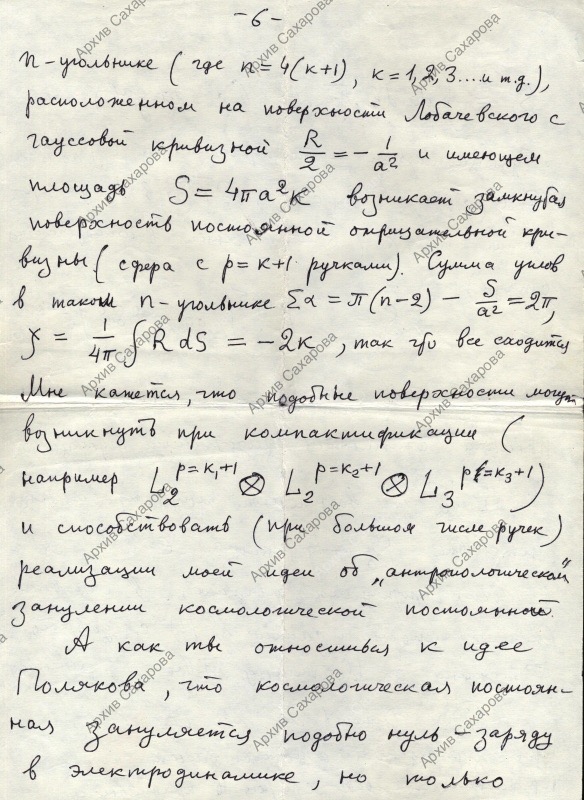 -6-
n-угольнике (где n=4(к+1), к=1,2,3....и т.д.),
расположенном на поверхности Лобачевского с
гауссовой кривизной R/2 = - 1/a² и имеющем
площадь S=4πa²к возникает замкнутая
поверхность постоянной отрицательной кри-
визны (сфера с p=к+1 ручками). Сумма углов
в таком n-угольнике Σα = π(n-2) - S/a² = 2π,
χ = 1/4π ∫ R dS = -2к, так что все сходится
Мне кажется, что подобные поверхности могут
возникнуть при компактификации (
например L₂^{p=к₁+1} ⊗ L₂^{p=к₂+1} ⊗ L₃^{p=к₃+1})
и способствовать (при большом числе ручек)
реализации моей идеи об „антропологическом"
занулении космологической постоянной.
А как ты относишься к идее
Полякова, что космологическая постоян-
ная зануляется подобно нуль-заряду
в электродинамике, но только
Архив Сахарова